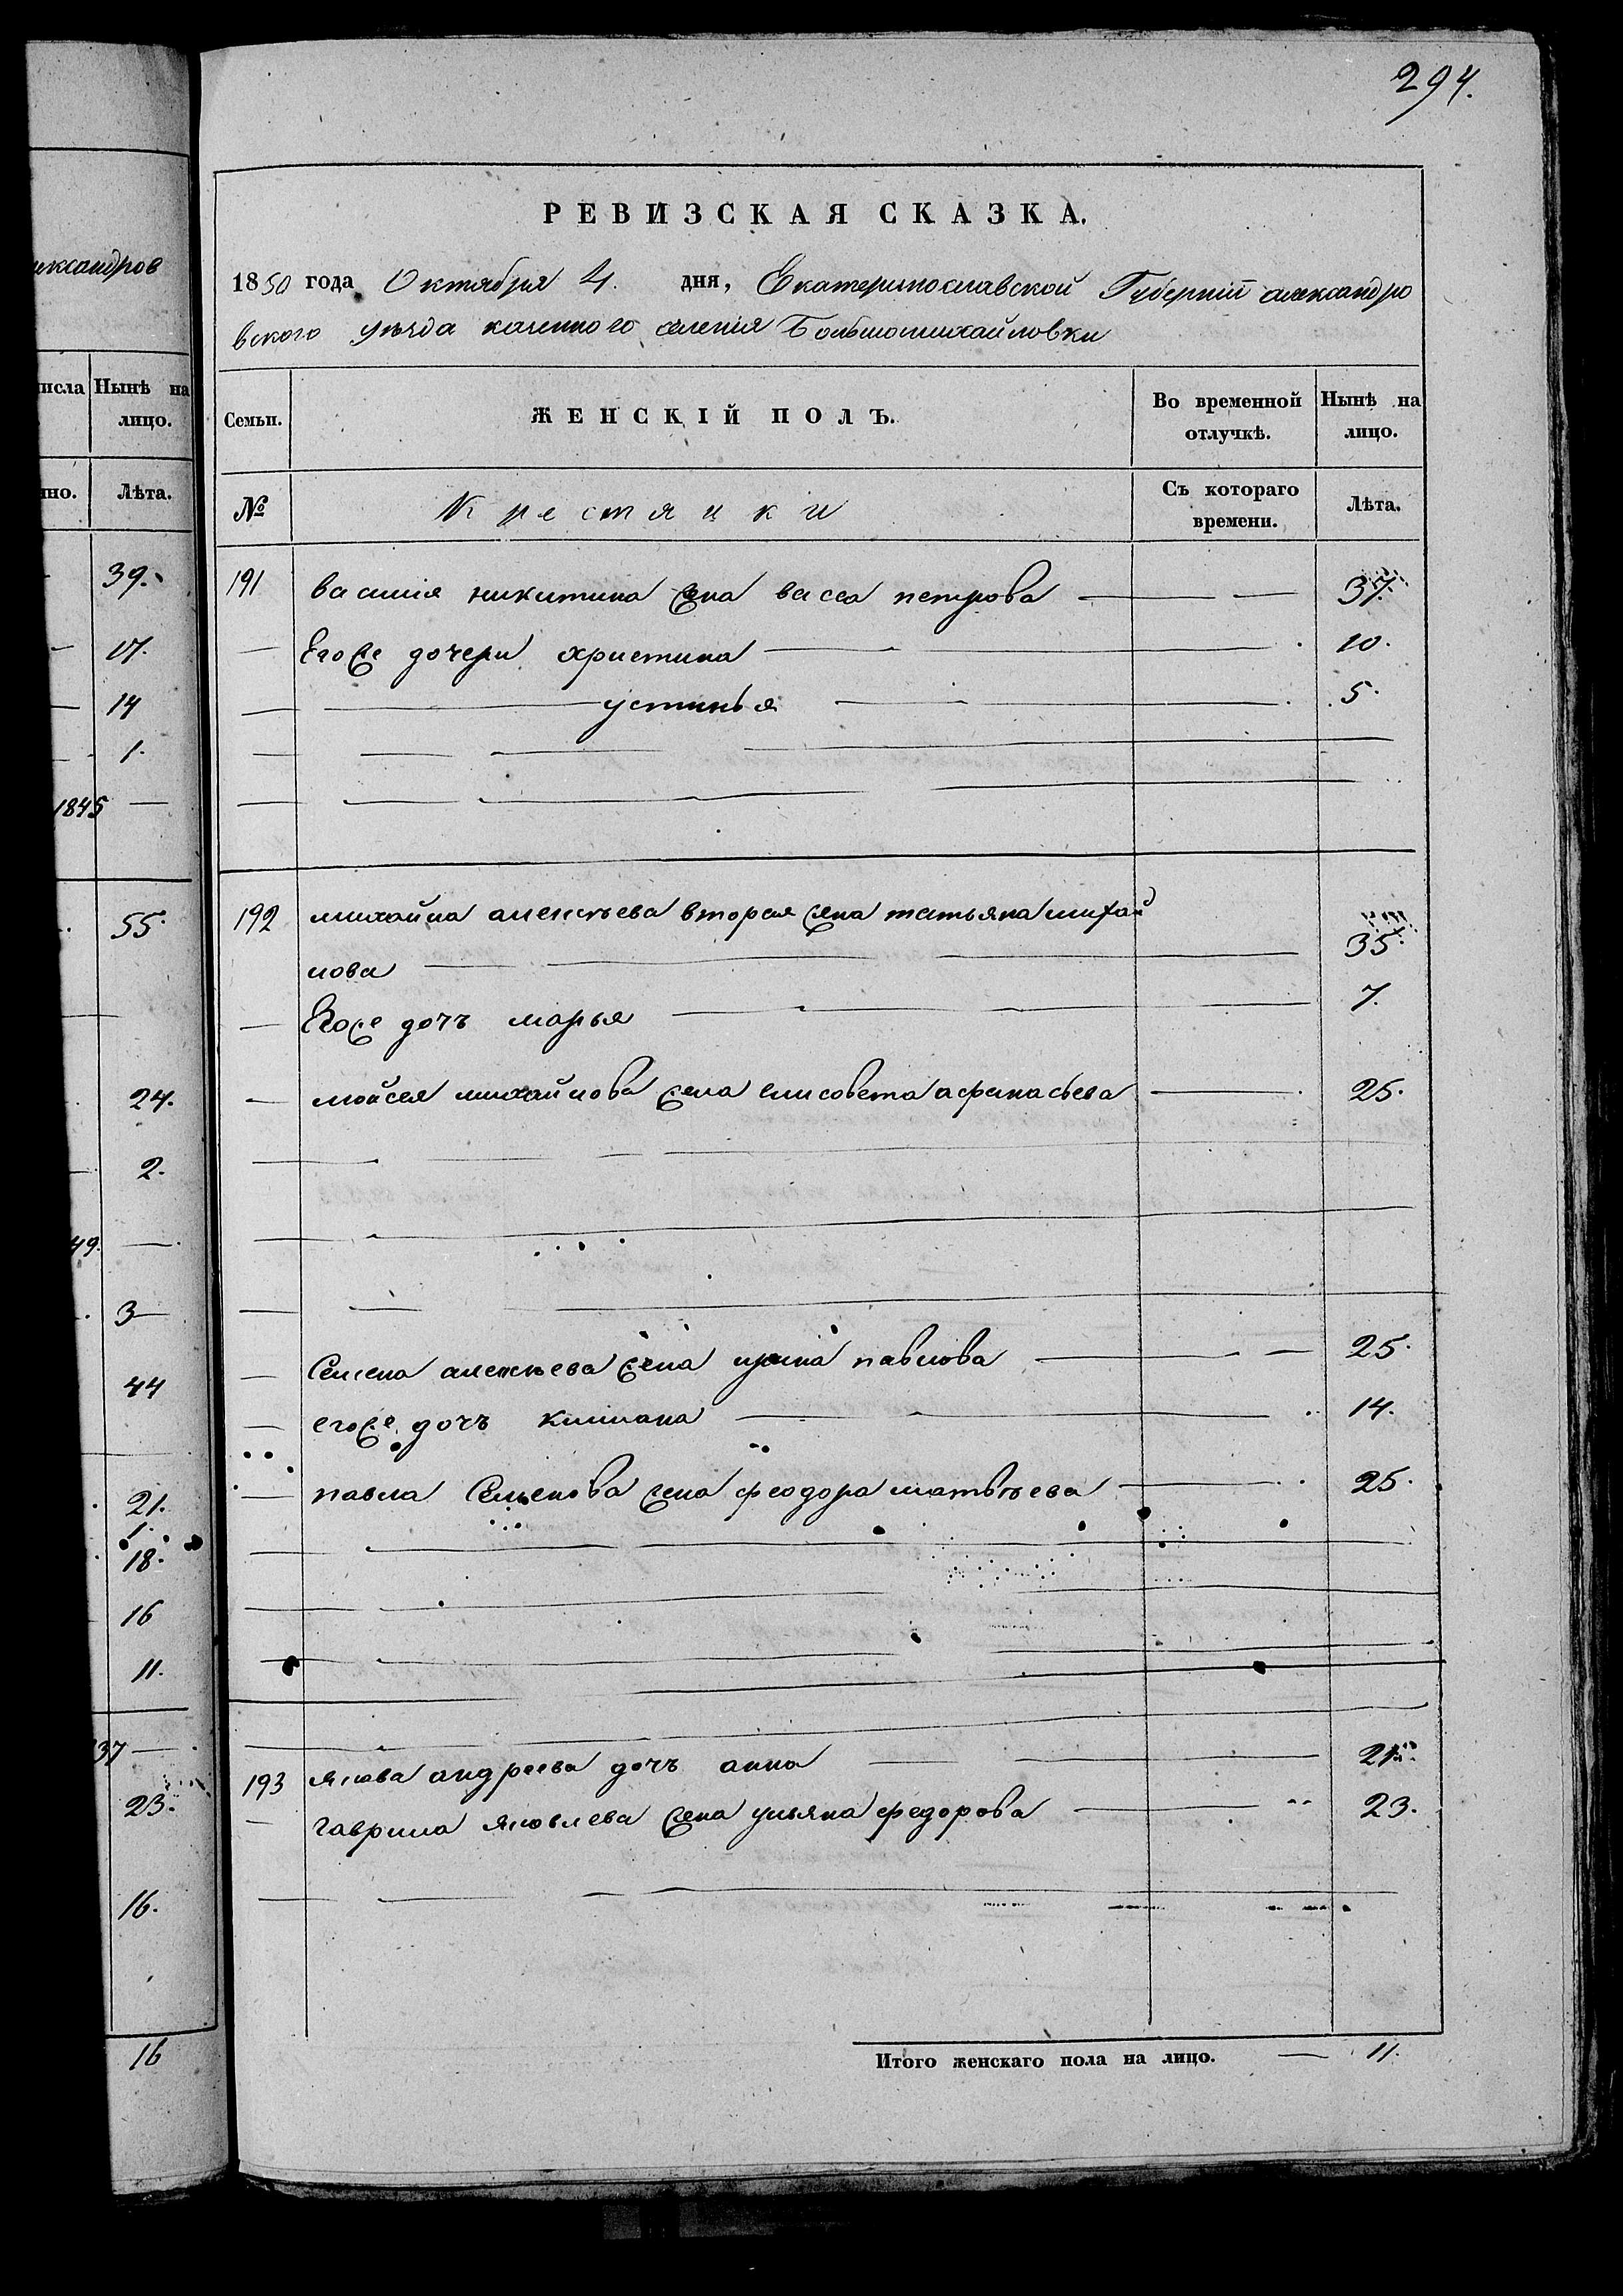 294.
РЕВИЗСКАЯ СКАЗКА.
1850 года Октября 4. дня, Екатеринославской Губерніи александро
вского уѣзда казенного селенія Большомихайловки
Семьи. ЖЕНСКІЙ ПОЛЪ. Во временной отлучкѣ. Нынѣ на лицо.
№ Крестянки Съ котораго времени. Лѣта.
191 василія никитина жена васса петрова 37.
Егоже дочери христина 10.
устинья 5.
192 михайла алексѣева вторая жена татьяна михай
лова 35.
Егоже дочъ марья 7.
мойсея михайлова жена елисовета афанасьева 25.
Семена алексѣева жена ирина павлова 25.
егоже дочъ киликия 14.
павла Семенова жена феодора матвѣева 25.
193 якова андреева дочъ анна 21.
гаврила яковлева жена ульяна федорова 23.
Итого женскаго пола на лицо. 11.
лександров
исла Нынѣ на лицо.
но. Лѣта.
39.
17.
14
1.
1845
55.
24.
2.
49.
3
44
21.
1.
18.
16
11.
37
23.
16.
16